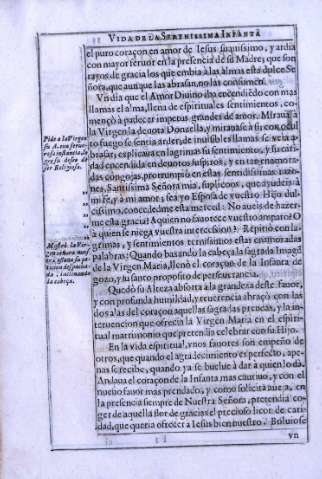 VIDA DE LA SERENISSIMA INFANTA
el puro coraçon en amor de Iesus suauissimo, y ardia
con mayor feruor en la presencia de su Madre; que son
rayos de gracia los que embia à las almas esta dulce Se
ñora, que aunque las abrasan, no las consumen.
Vn dia que el Amor Diuino iba encendiēdo con mas
llamas el alma, llena de espirituales sentimientos, co-
mençò à padecer impetus grandes de amor. Miraua à
la Virgen la deuota Donzella, y miraua se à sì: con
to fuego se sentia arder, de inuisibles llamas se veia a-
brasar; explicaua en lagrimas su sentimiento, y su cari-
dad encendida en deuotos suspiros, y en tan enamora-
das congojas, prorrumpiò en estas sentidissimas razo-
nes. Santissima Señora mia, suplicoos, que ayudeis à
mi re, y à mi amor; sea yo Esposa de vuestro Hijo dul-
cissimo, concededme esta merced: No aueis de hazer-
me esta gracia? A quien no fauorece vuestro amparo? O
à quien le niega vuestra intercession? Repitiò con la-
grimas, y sentimientos ternissimos estas enamoradas
palabras: Quando baxando la cabeça la sagrada Imagē
de la Virgen Maria, llenò el coraçon de la Infanta de
gozo, y su santo proposito de perseuerancia.
Quedò su Alteza absorta à la grandeza deste fauor,
y con profunda humildad, y reuerencia abraçò con las
dos alas del coraçon aquellas sagradas prendas, y la in-
teruencion que ofreciò la Virgen Maria en el espiri-
tual matrimonio que pretendia celebrar con su Hijo.
En la vida espiritual, vnos fauores son empeño de
otros, que quando el agradecimiento es perfecto, ape-
nas se recibe, quando ya se buelue à dar à quien lo dà.
Andaua el coraçon de la Infanta mas cautiuo, y con el
nueuo fauor mas prendado, y como solicita aueja, en
la presencia siempre de Nuestra Señora, pretendia co-
ger de aquella flor de gracias el precioso licor de cari-
dad, que queria ofrecer à Iesus bien nuestro. Boluiose
vn
Pide à la Virgen
su A. con feruo-
roso
se su deseo de
ser Religiosa.
la Vir-
gen
cabeça.